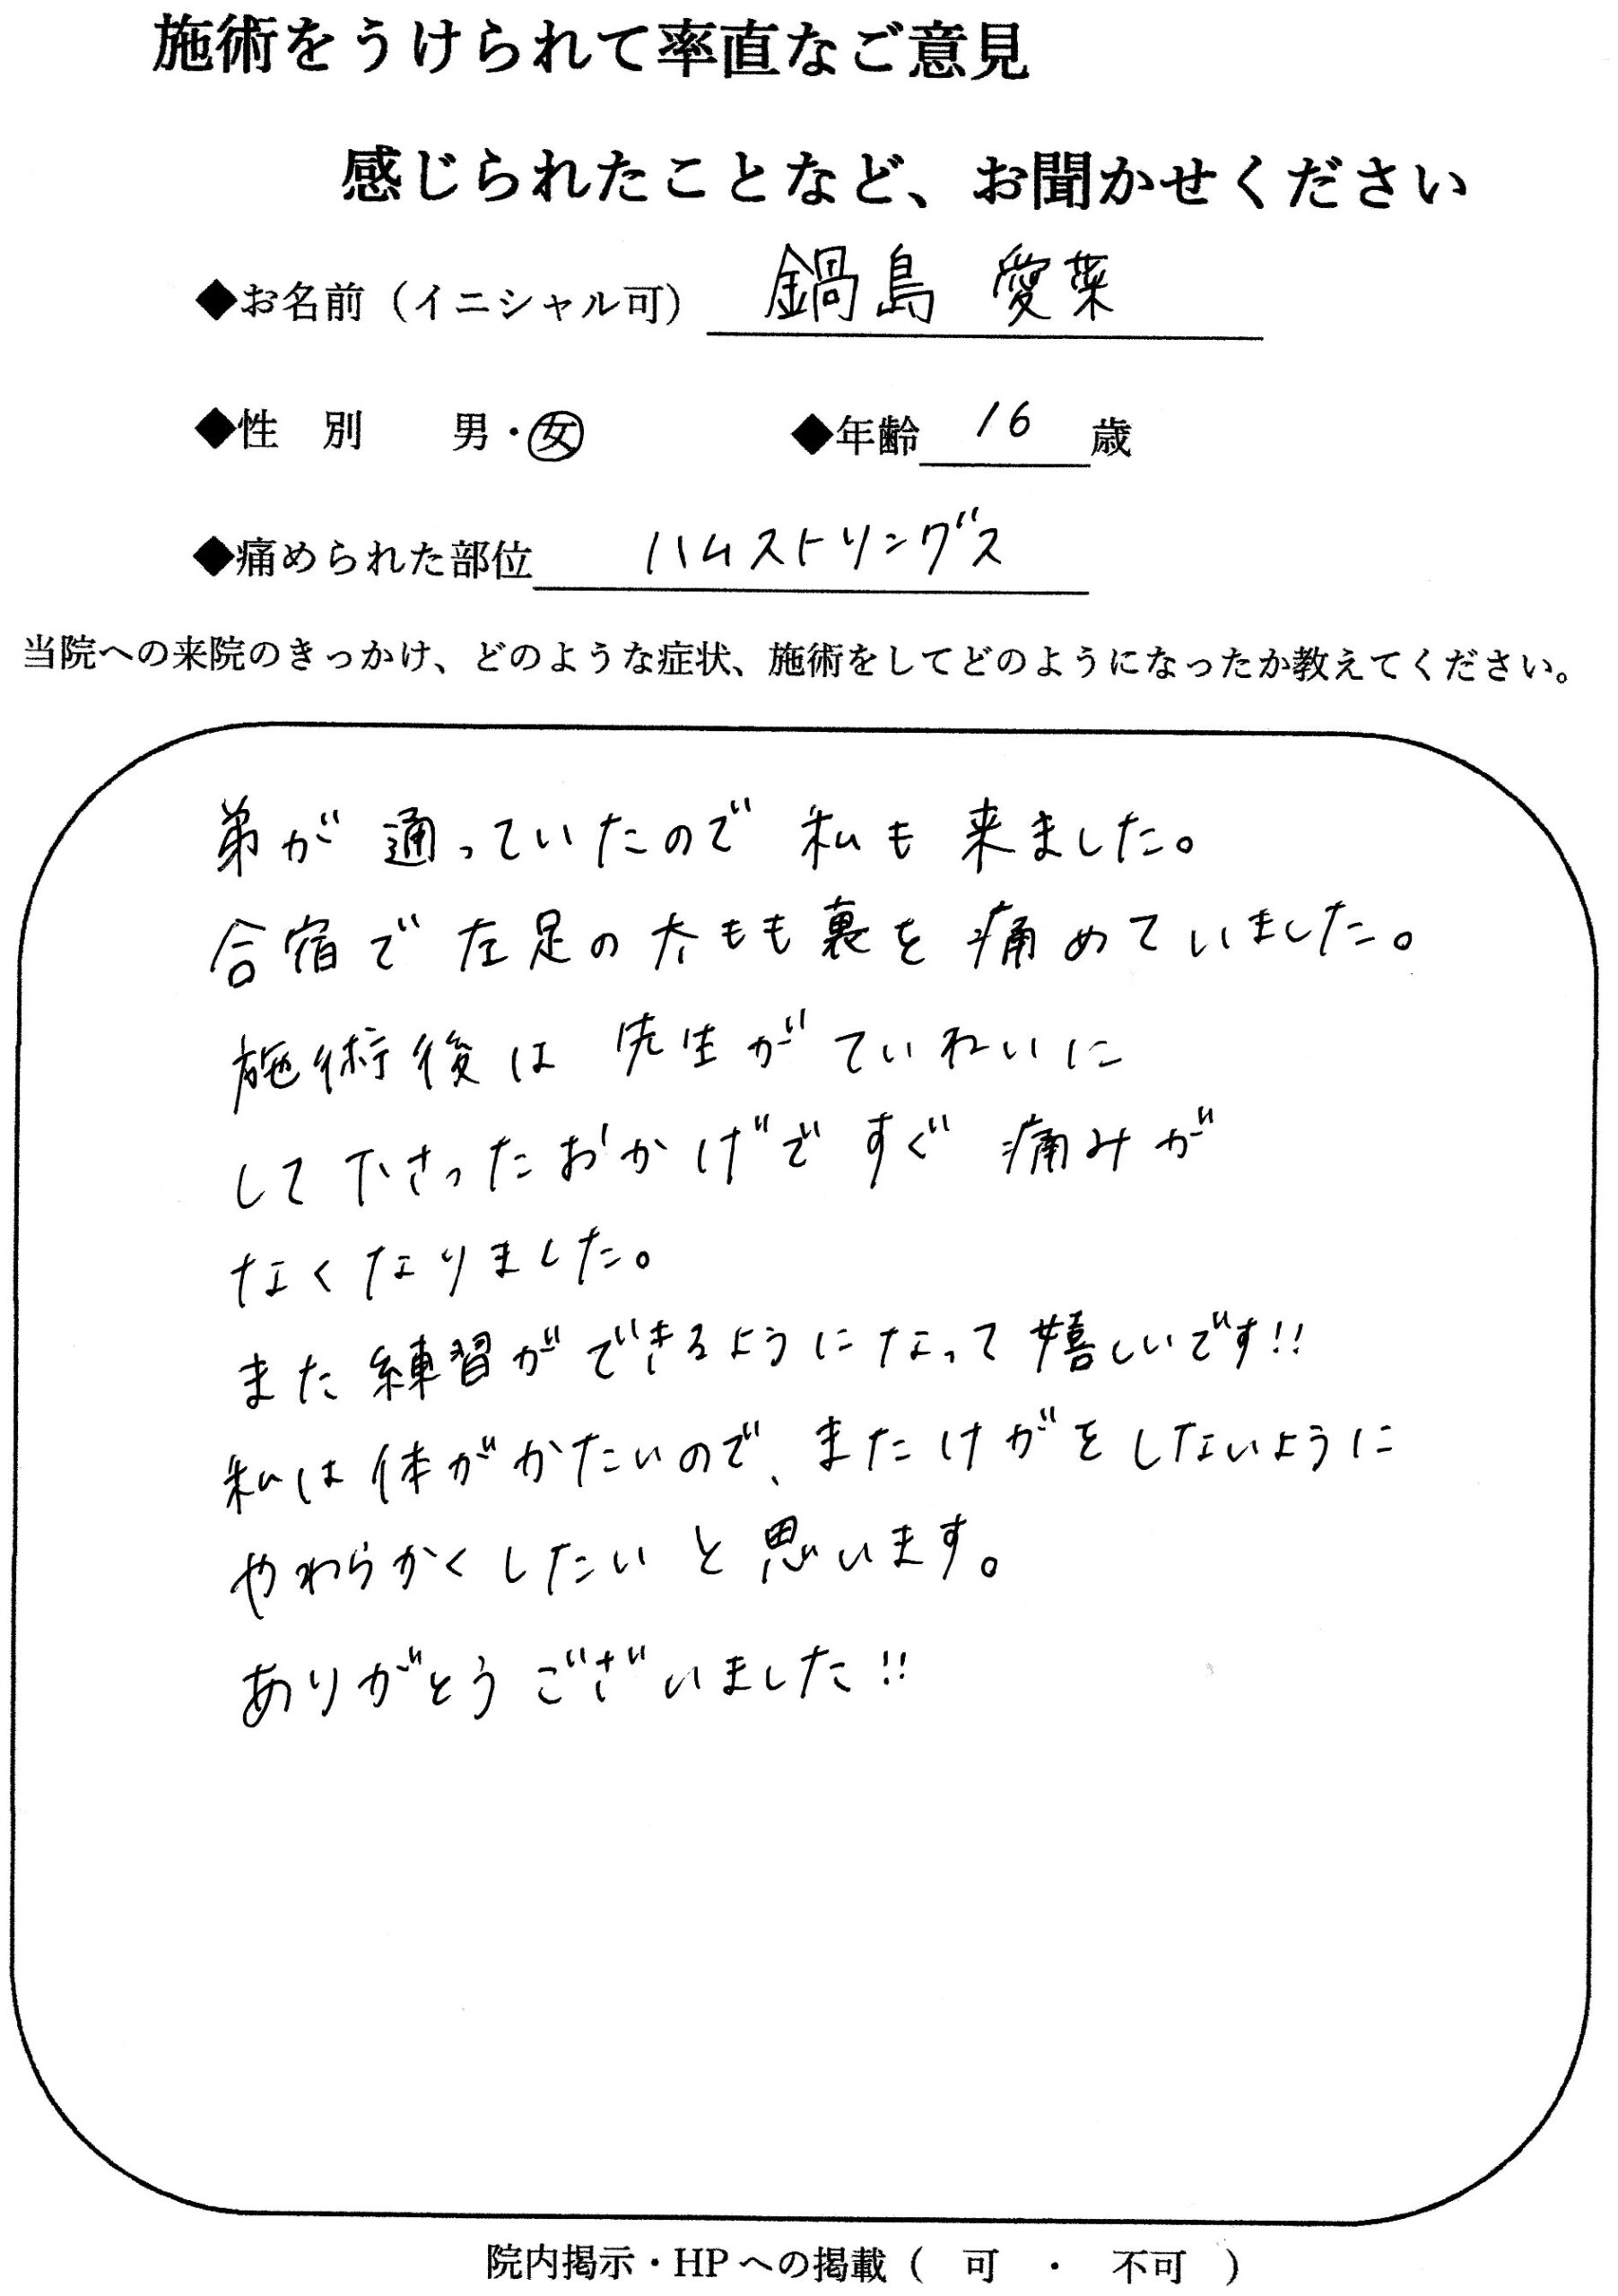 施術をうけられて率直なご意見
感じられたことなど、お聞かせください
◆お名前（イニシャル可） 鍋島 愛菜
◆性 別 男・女 ◆年齢 16 歳
◆痛められた部位 ハムストリングス
当院への来院のきっかけ、どのような症状、施術をしてどのようになったか教えてください。
弟が通っていたので私も来ました。
合宿で左足の太もも裏を痛めていました。
施術後は先生がていねいに
して下さったおかげですぐ痛みが
なくなりました。
また練習ができるようになって嬉しいです!!
私は体がかたいので、またけがをしないように
やわらかくしたいと思います。
ありがとうございました!!
院内掲示・HPへの掲載（ 可 ・ 不可 ）